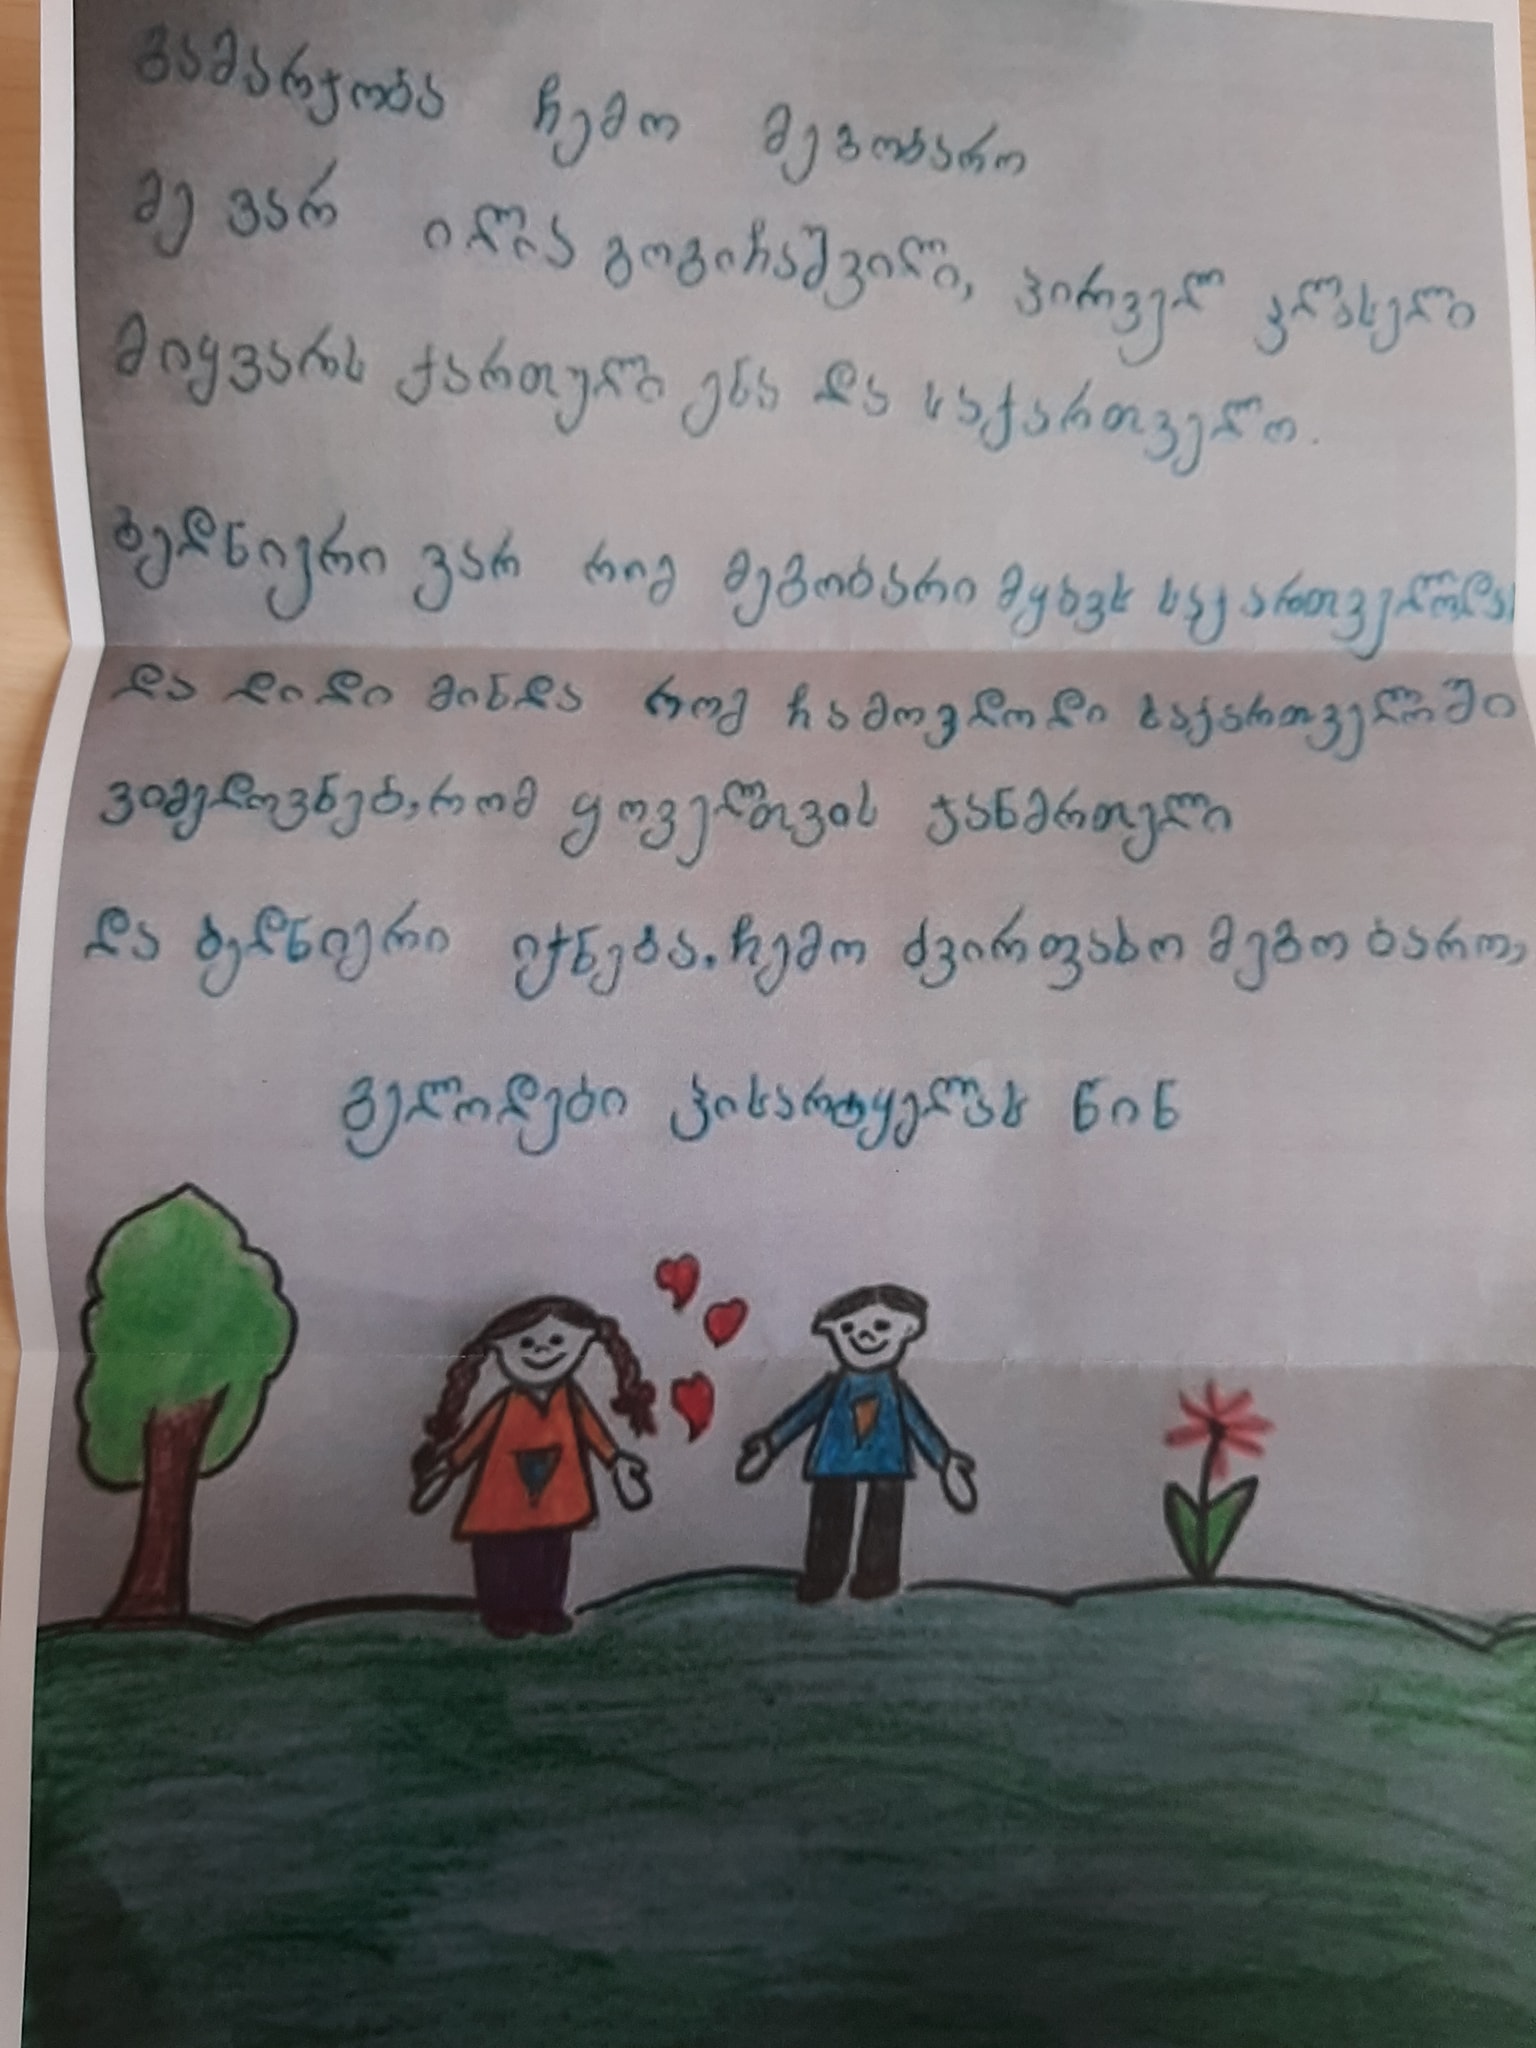 გამარჯობა ჩემო მეგობარო
მე ვარ ილია გოგიჩაშვილი, პირველ კლასელი
მიყვარს ქართული ენა და საქართველო.
ბედნიერი ვარ რომ მეგობარი მყავს საქართველოდან
და დიდი მინდა რომ ჩამოვდოდი საქართველოში
ვიმედოვნებ, რომ ყოველთვის ჯანმრთელი
და ბედნიერი იქნება. ჩემო ძვირფასო მეგობარო,
გელოდები ცისარტყელას წინ